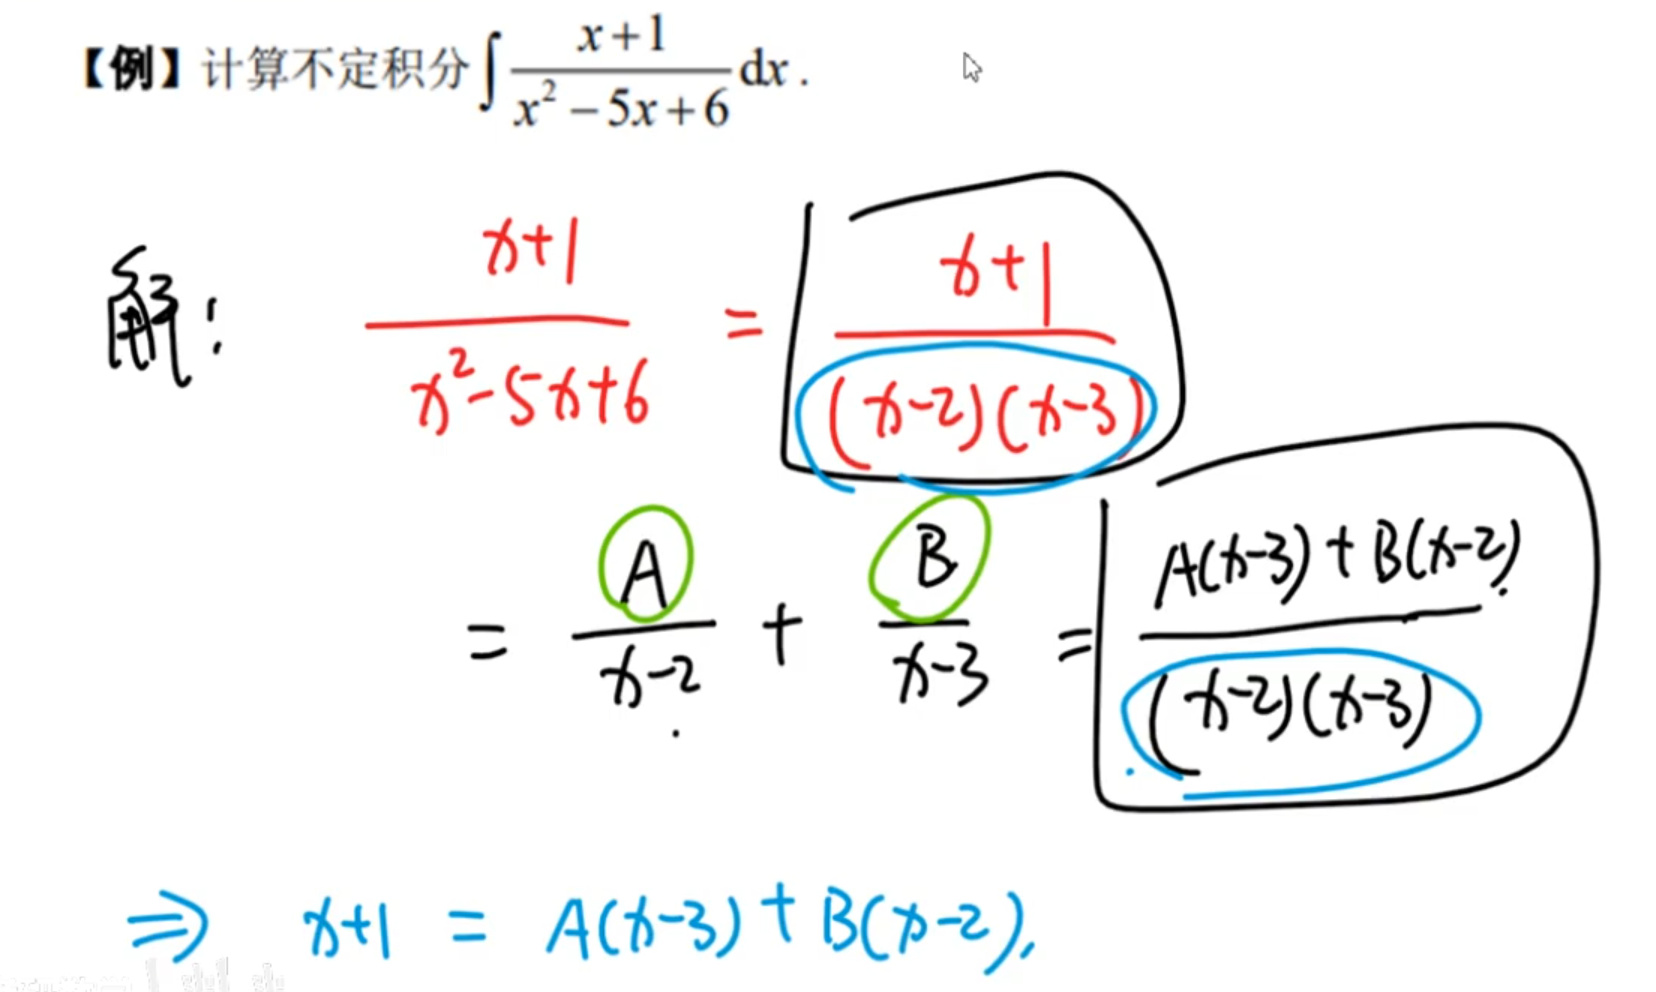 【例】计算不定积分 ∫ (x+1)/(x² − 5x + 6) dx .
解: (x+1)/(x²-5x+6) = (x+1)/((x-2)(x-3))
= A/(x-2) + B/(x-3) = (A(x-3)+B(x-2))/((x-2)(x-3))
⇒ x+1 = A(x-3)+B(x-2),